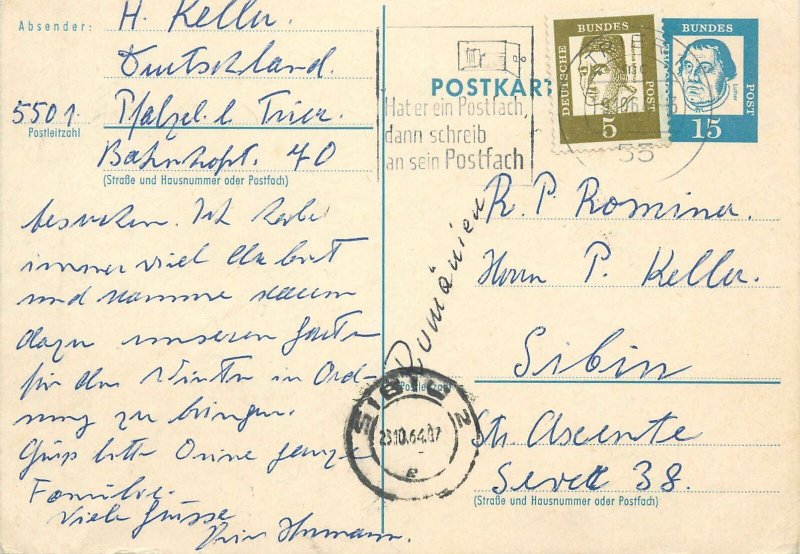 Absender: H. Keller
Deutschland.
5501. Pfalzel b Trier
Postleitzahl
Bahnhofst. 70
(Straße und Hausnummer oder Postfach)
besuchen. Ich habe
immer viel Arbeit
und komme kaum
dazu unseren Garten
für den Winter in Ord-
nung zu bringen.
Grüß bitte Deine ganze
Familie.
Viele Grüsse
Dein Hermann.
POSTKAR
Hat er ein Postfach,
dann schreib
an sein Postfach
DEUTSCHE BUNDES POST
5
DEUTSCHE BUNDES POST
Luther
15
55
R. P. Romina.
Herrn P. Keller.
Rumänien
Sibiu
Postleitzahl
SIBIU 2
23.10.64.07
Str. Ascente
Sever 38.
(Straße und Hausnummer oder Postfach)